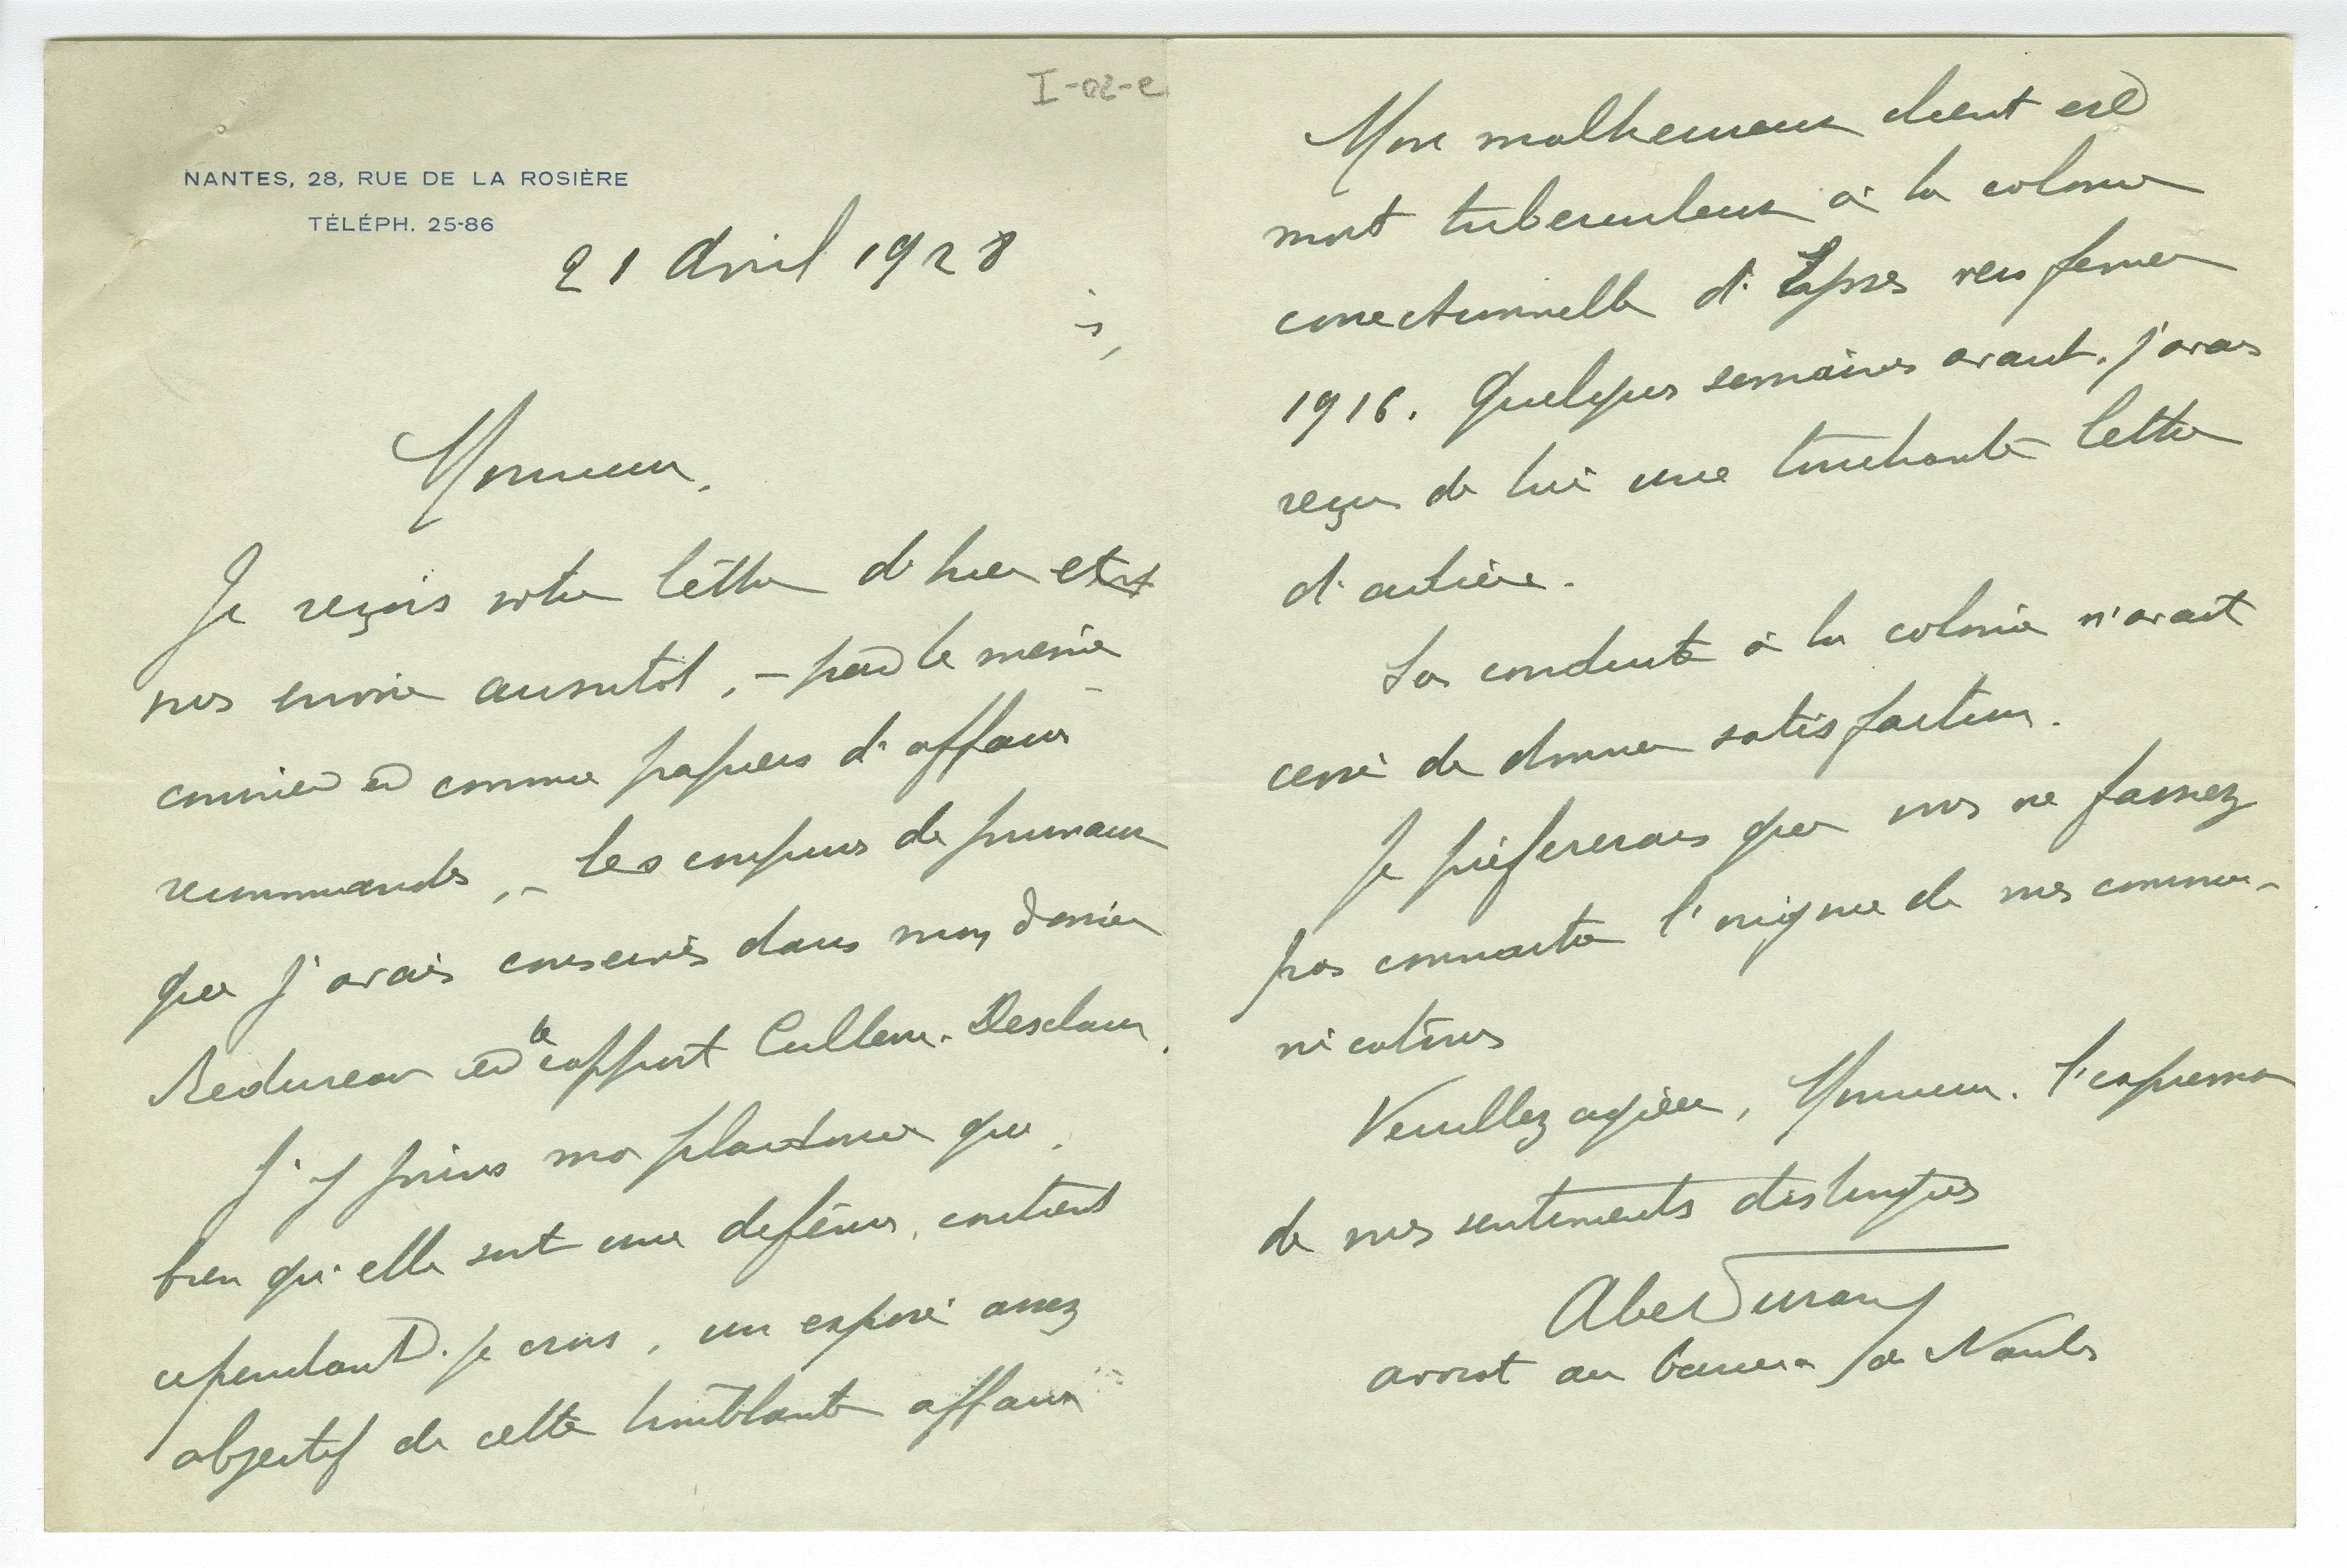 I-02-e
NANTES, 28, RUE DE LA ROSIÈRE
TÉLÉPH. 25-86
21 Avril 1928
Monsieur,
Je reçois votre lettre de hier et
vous envoie aussitôt, – par le même
courrier et comme papiers d'affaires
recommandés, – les coupures de journaux
que j'avais conservées dans mon dossier
Redureau et le rapport Cullerre-Desclaux.
J'y joins ma plaidoirie qui,
bien qu'elle soit une défense, contient
cependant, je crois, un exposé assez
objectif de cette troublante affaire
Mon malheureux client est
mort tuberculeux à la colonie
correctionnelle d' vers février
1916. Quelques semaines avant, j'avais
reçu de lui une touchante lettre
d'adieu.
Sa conduite à la colonie n'avait
cessé de donner satisfaction.
Je préfèrerais que vous ne fassiez
pas connaître l'origine de mes commu-
nications
Veuillez agréer, Monsieur, l'expression
de mes sentiments distingués
Abel Durand
avocat au barreau de Nantes